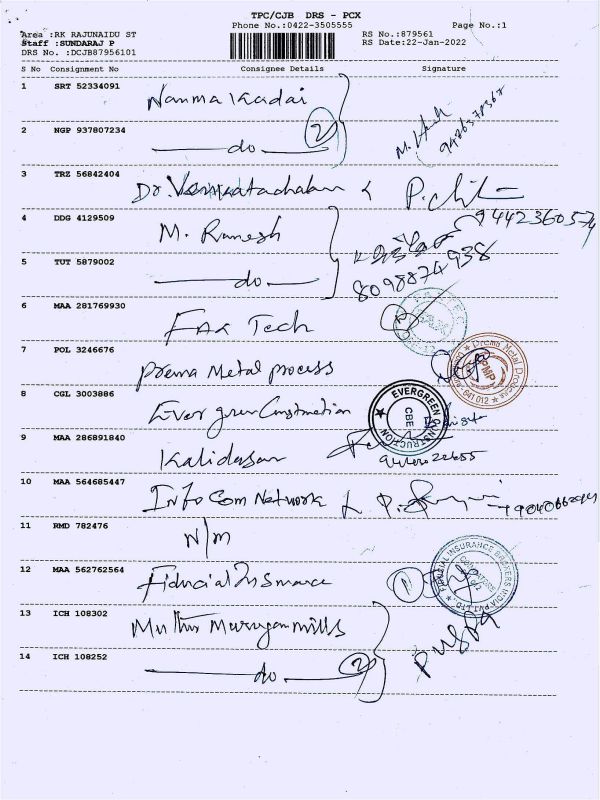 TPC/CJB DRS - PCX
Phone No.:0422-3505555 Page No.:1
Area :RK RAJUNAIDU ST RS No.:879561
Staff :SUNDARAJ P RS Date:22-Jan-2022
DRS No. :DCJB87956101
S No Consignment No Consignee Details Signature
1 SRT 52334091 Nanma Kadai
2 NGP 937807234 do 2
3 TRZ 56842404 Dr Venkatachalam
4 DDG 4129509 M. Ramesh 9442360574
5 TUT 5879002 do 8098874938
6 MAA 281769930 FAX Tech
7 POL 3246676 Prema Metal process
8 CGL 3003886 Evergreen Construction
EVERGREEN CONSTRUCTION CBE
9 MAA 286891840 Kalidasan
10 MAA 564685447 InfoCom Network
11 RMD 782476 N/m
12 MAA 562762564 Fiducial Insurance 1
FIDUCIAL INSURANCE BROKERS INDIA PVT. LTD.
13 ICH 108302 Muthu Murugan mills
14 ICH 108252 do 2
Puspa